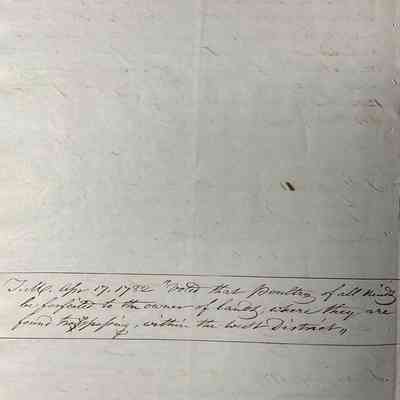 T.M. Apr 17. 1782 "Voted that Poultry of all kinds
be forfeited to the owner of lands, where they are
found trespassing, within the west District„